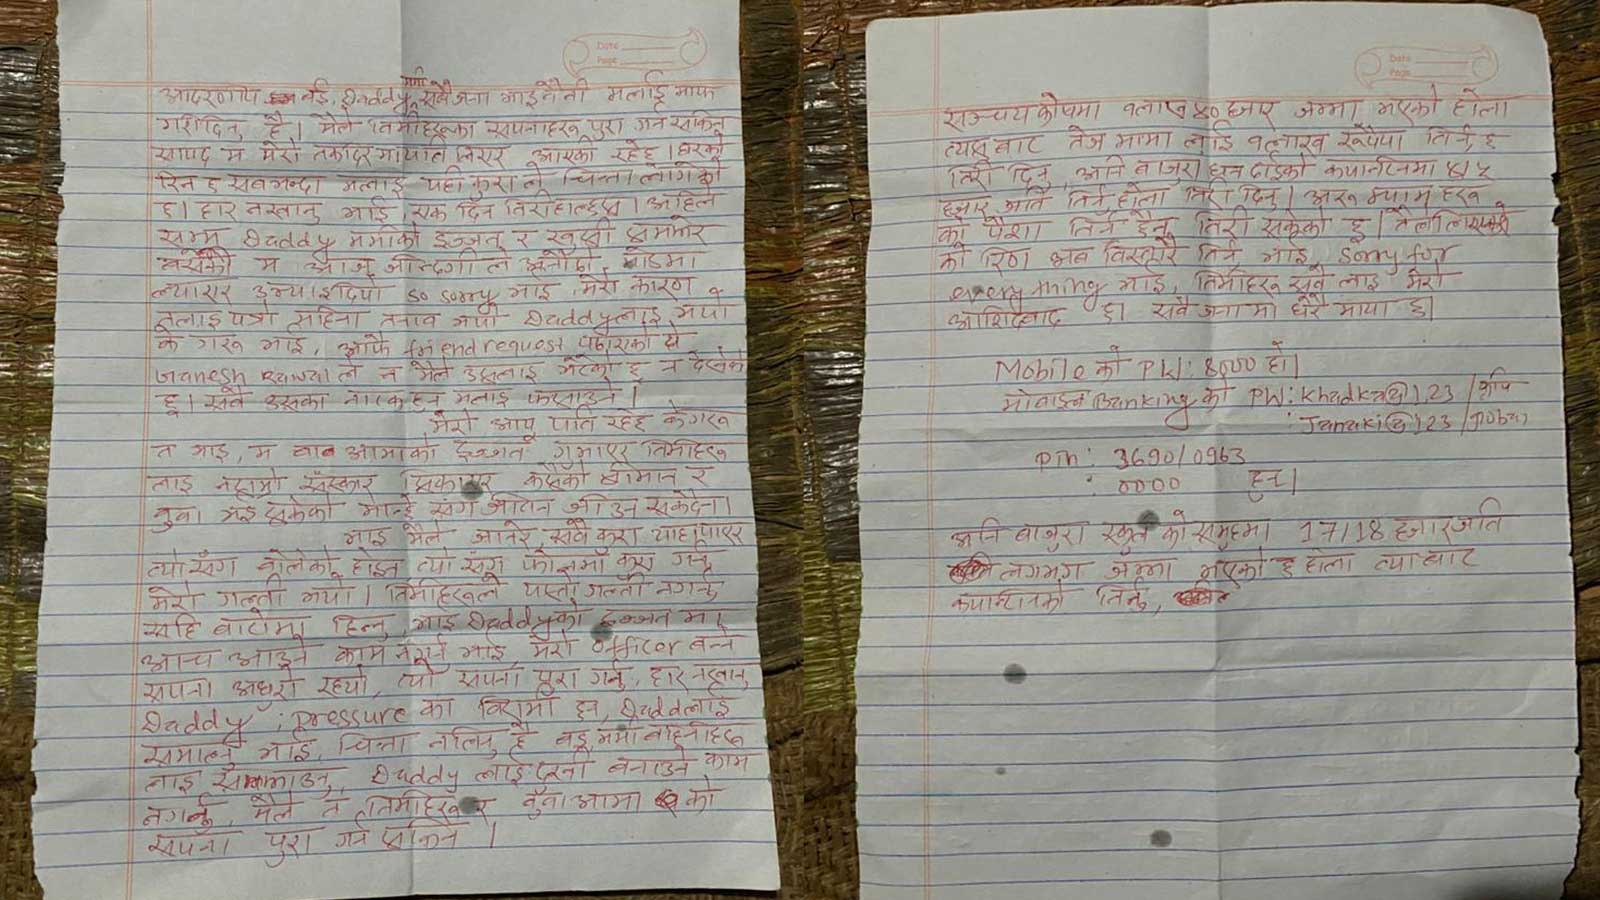 Date
Page
आदरणीय बडु, Daddy, ममी सबैजना भाइबैनी मलाई माफ
गरिदिनु है। मैले तिमीहरुका सपनाहरु पुरा गर्न सकिन
सायद म मेरो तकदिर माथाति लिएर आएकी रहेछु। घरको
रिन छ सबभन्दा मलाई यही कुरा ले चिन्ता लागेको
छ। हार नखानु भाई, एक दिन तिरीहाल्छौ। अहिले
सम्म Daddy ममीको इज्जत र खुशी सम्झेर
बसेकी म आज जिन्दगी ले अनौठो मोडमा
ल्याएर उभ्याइदियो so sorry भाई, मेरो कारण
तलाइ पनी यहिना तनाव भयो Daddyलाई भयो
के गरु भाई, आफै friend request पठाएको थे
Ganesh Rawal ले न मैले उसलाई भेटेको छु न देखेको
छु। सबै उसका नाटक हुन मलाई फसाउने।
मेरो आयु यति रहेछ के गरु
त भाइ, म बाबआमाको इज्जत गुमाएर तिमीहरु
लाई नराम्रो संस्कार सिकाएर कसैको श्रीमान र
बुवा भई सकेको मान्छे संग जीवन जीउन सक्दैन।
भाइ मैले जानेर सबै कुरा थाहापाएर
त्यो सँग बोलेको होइन त्यो सँग फोनमा कुरा गर्नु
मेरो गल्ती भयो। तिमीहरुले यस्तो गल्ती नगर्नु
सहि बाटोमा हिन्नु, भाइ Daddyको इज्जत मा
आच आउने काम नगर्न भाई, मेरो officer बन्ने
सपना अधुरो रह्यो, त्यो सपना पुरा गर्नु, हार नखानु
Daddy pressure का विरामी हुन, Daddलाई
समाल्नु भाई, चिन्ता नलिनु है बडु, ममी बहिनीहरु
लाई सम्झाउनु, Daddy लाई दुखी बनाउने काम
नगर्नु, मैले त तिमीहरु र बुवाआमा को
सपना पुरा गर्न सकिन।
Date
Page
सञ्चय कोषमा १लाख ४० हजार जम्मा भएको होला
त्यस बाट तेज मामा लाई १लाख रुपैया तिर्न छ
तिरी दिनु, अनि बाजुरा हरुन दाईको क्यान्टिनमा ४/५
हजार जति तिर्न होला तिरी दिनु। अरु म्याम हरु
को पैसा तिर्न हैन, तिरी सकेको छु। तैलोलिएको
को रिण अब विस्तारै तिर्न भाई, sorry for
everything भाई, तिमीहरु सबै लाई मेरो
आर्शिवाद छ। सबै जना मा धेरै माया छ।
Mobile को PW: 8000 हो।
मोबाइल Banking को PW: Khadka@123 /कृषि
: Janaki@123 /ग्लोबल
Pin: 3690/0963
: 0000 हुन्।
अनि बाजुरा स्कुल को समूहमा 17/18 हजारजति
लगभग जम्मा भएको छ होला त्या बाट
क्यान्टिनको तिर्नु,